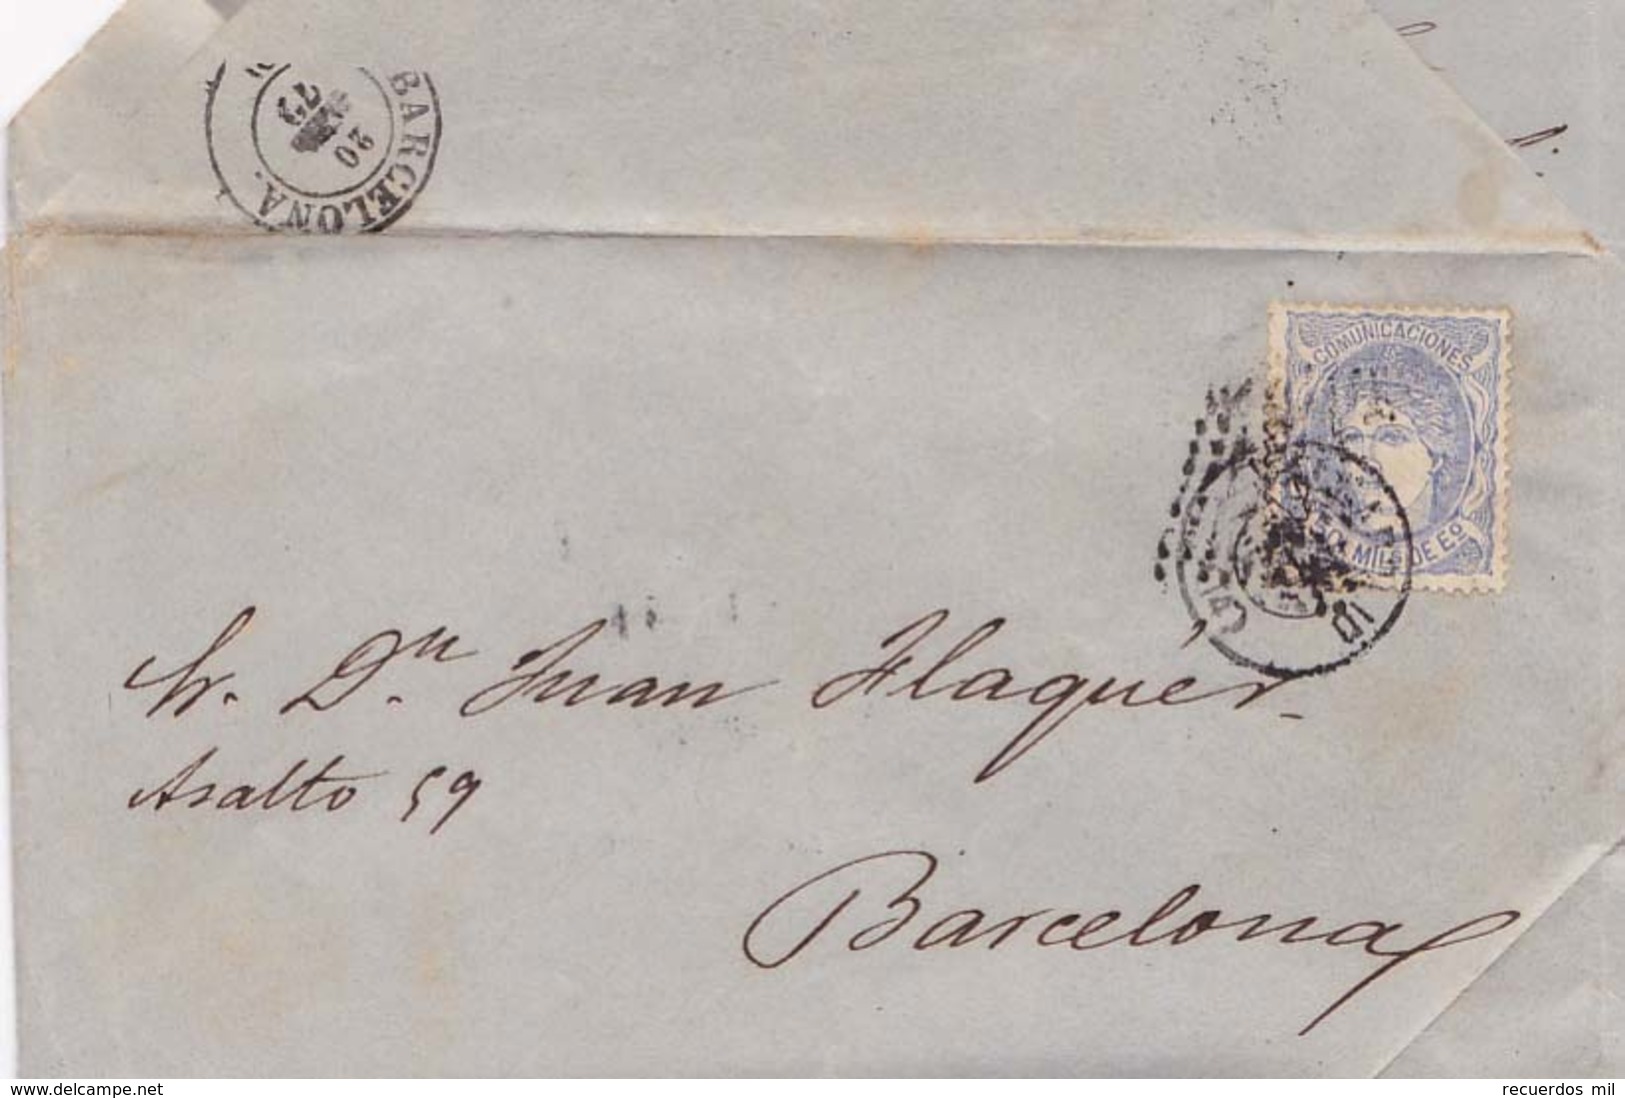 BARCELONA.
20
73
COMUNICACIONES
50 MILS DE Eº
Sr. Dn. Juan Flaquér
Asalto 59
Barcelona
www.delcampe.net
recuerdos mil